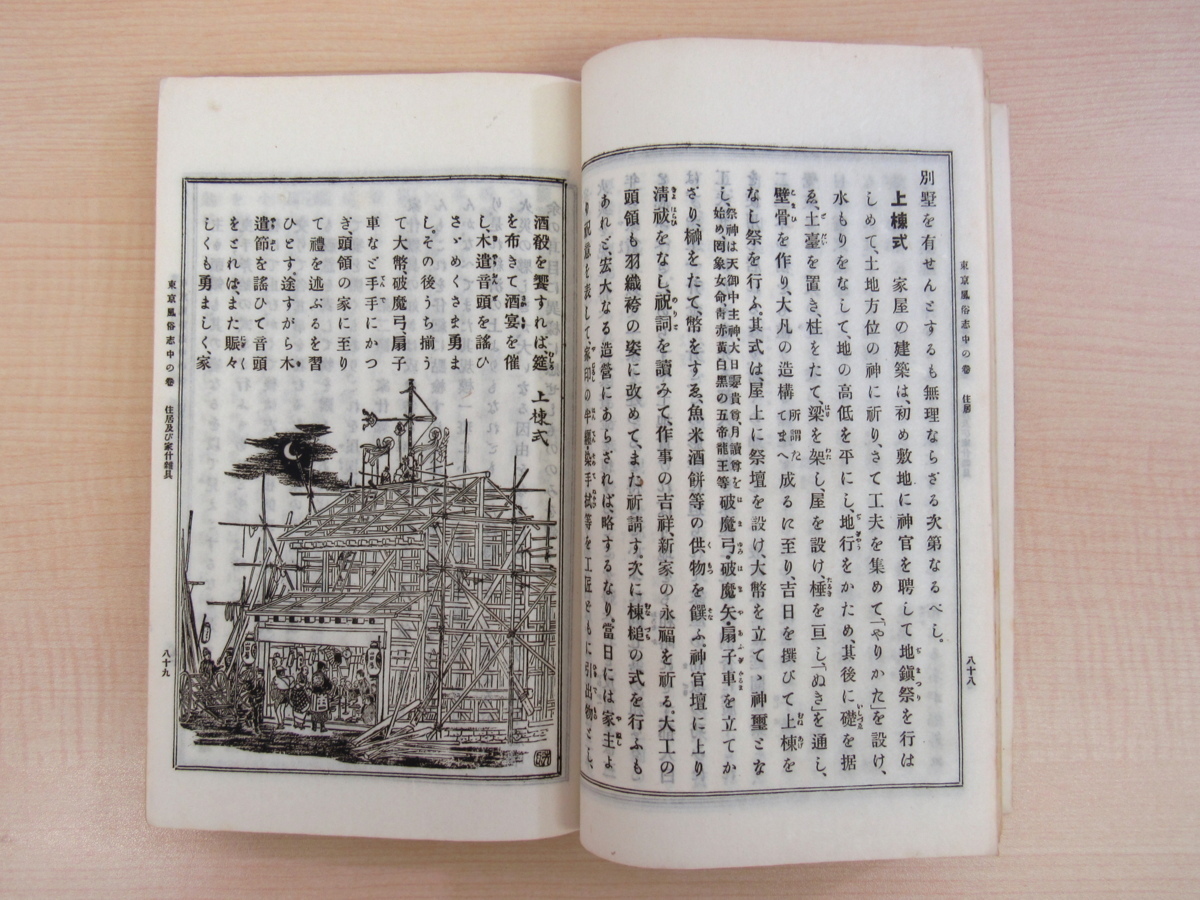 東京風俗志中の卷 住居
八十八
別墅を有せんとするも無理ならざる次第なるべし。
上棟式 家屋の建築は、初め敷地に神官を聘して地鎭祭を行は
しめて、土地方位の神に祈り、さて工夫を集めて「やりかた」を設け、
水もりをなして、地の高低を平にし、地行をかため、其後に礎を据
ゑ、土臺を置き、柱をたて、梁を架し、屋を設け、棰を亘し、「ぬき」を通し、
壁骨を作り、大凡の造構 所謂たてまへ 成るに至り、吉日を撰びて上棟を
なし祭を行ふ。其式は、屋上に祭壇を設け、大幣を立てゝ神璽とな
し、祭神は天御中主神、大日孁貴尊、月讀尊を始め、罔象女命、靑赤黃白黑の五帝龍王等 破魔弓・破魔矢・扇子車を立てか
ざり、榊をたて、幣をすゑ、魚米酒餠等の供物を饌ふ、神官壇に上り
淸祓をなし、祝詞を讀みて、作事の吉祥、新家の永福を祈る。大工の
頭領も羽織袴の姿に改めて、また祈請す、次に棟槌の式を行ふも
あれど、宏大なる造營にあらざれば、略するなり。當日には家主よ
り祝意を表して、家印の半纏・染手拭等を工匠どもに引出物とし、
酒殽を饗すれば、筵
を布きて酒宴を催
し、木遣音頭を謠ひ
さゞめくさま勇ま
し。その後うち揃う
て大幣破魔弓、扇子
車など手手にかつ
ぎ、頭領の家に至り
て禮を述ぶるを習
ひとす。途すがら木
遣節を謠ひて音頭
をとれば、また賑々
しくも勇ましく家
上棟式
東京風俗志中の卷 住居及び家什雜具
八十九